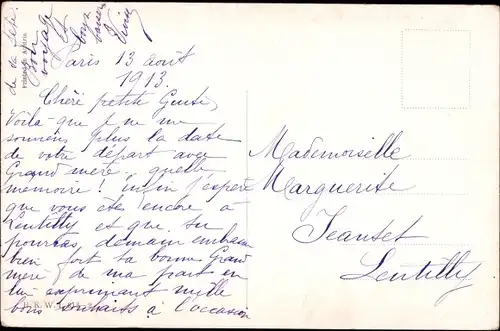 Paris 13 août
1913.
Chéré petite
Voilà que je ne me
souviens plus la date
de votre départ avec
Grand mère, quelle
mémoire! enfin j'espère
que vous êtes encore à
Lentilly et que tu
pourras, demain embrasser
bien fort ta bonne Grand
mère de ma part en
lui exprimant mille
bons souhaits à l'occasion
de la
Bon
voyage
Mademoiselle
Marguerite
Jeanset
Lentilly